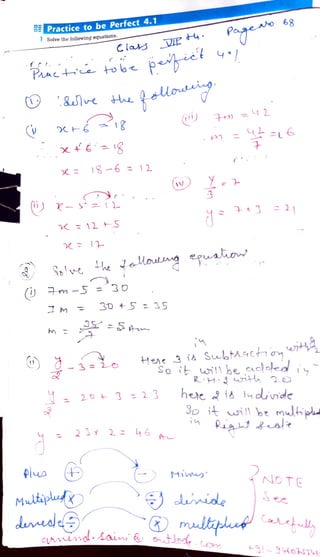 Practice to be Perfect 4.1
1 Solve the following equations.
Class VII th. Page No 68
Practice to be perfect 4.1
① Solve the following.
(i) x + 6 = 18
x + 6 = 18
x = 18 - 6 = 12
(ii) x - 5 = 12
x = 12 + 5
x = 17
(iii) 7m = 42
m = 42/7 = 6
(iv) y/3 = 7
y = 7 × 3 = 21
② Solve the following equation
(i) 7m - 5 = 30
7m = 30 + 5 = 35
m = 35/7 = 5 Am
(ii) y/2 - 3 = 20
y/2 = 20 + 3 = 23
y = 23 × 2 = 46 An
Here 3 is Subtraction in with y/2
So it will be added in
R.H.S with 20
here 2 is In divide
So it will be multiplied
in Right
Plus + - Minus
Multiplied × ÷ devide
devide ÷ × multiplied
NOTE
See
Carefully
arvind.saini@outlook.com